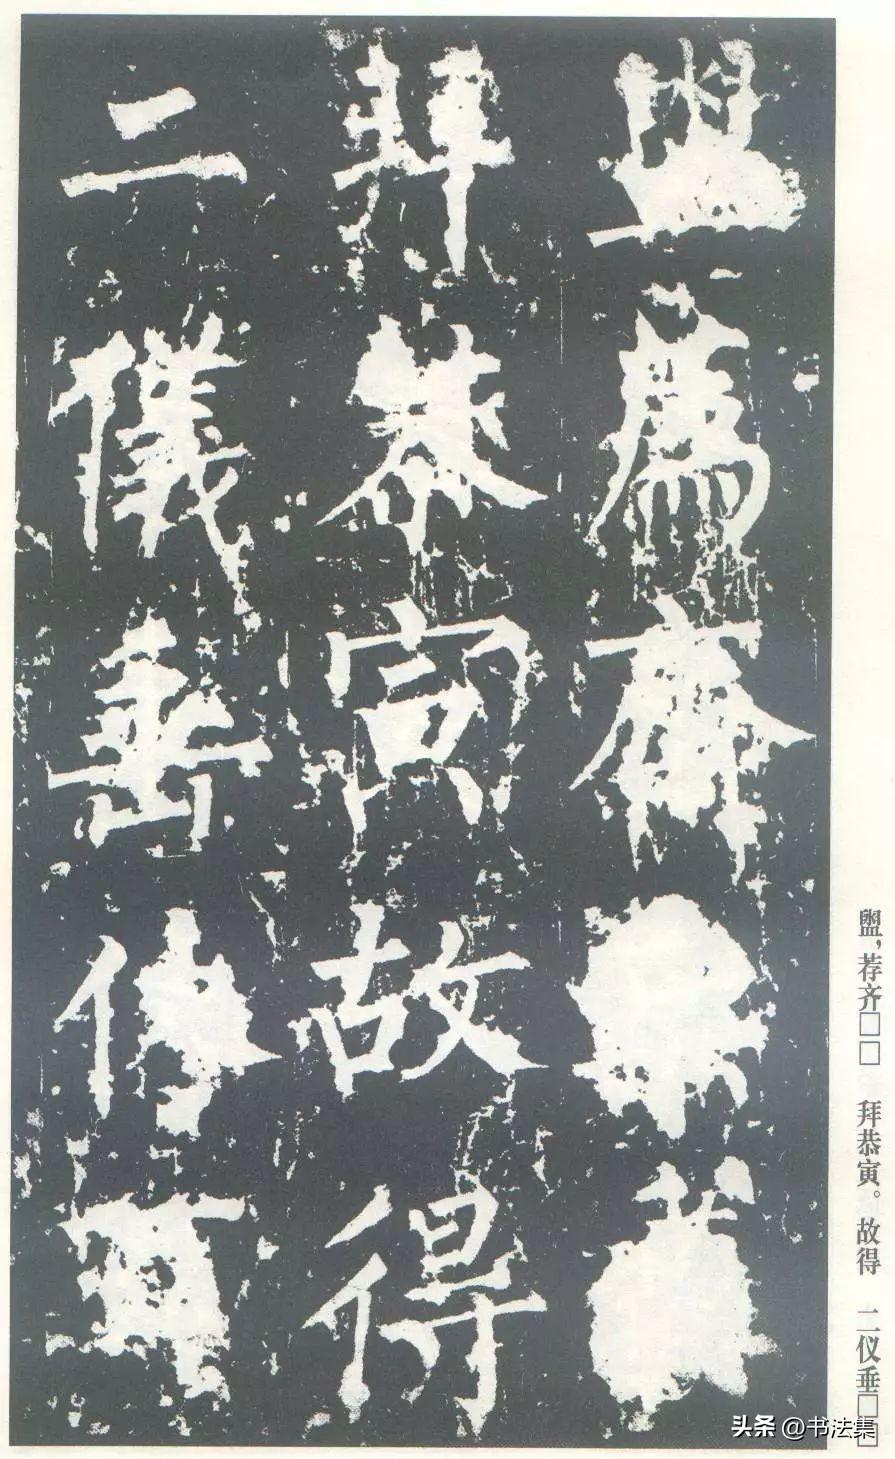 盥薦齊
拜恭寅故得
二儀垂
盥，荐齐□□ 拜恭寅。故得 二仪垂□□
头条 @书法集